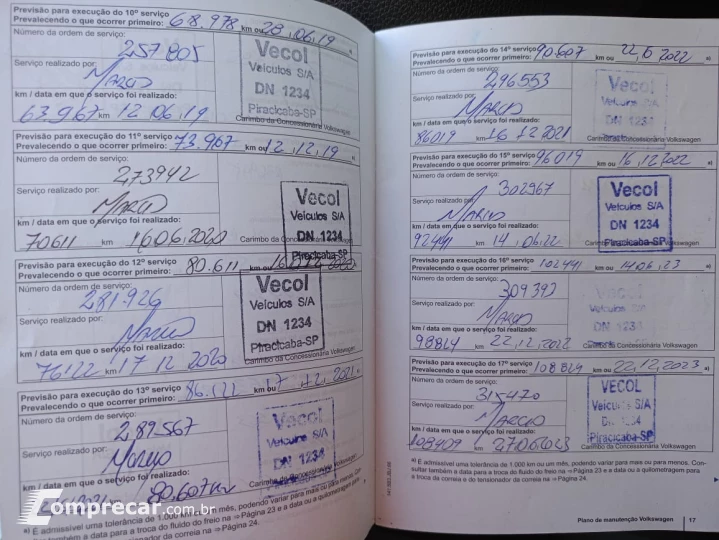 Previsão para execução do 10º serviço
Prevalecendo o que ocorrer primeiro: 68.978 km ou 28.06.19 a)
Número da ordem de serviço:
257.805
Serviço realizado por:
Marcio
km / data em que o serviço foi realizado:
63.967 km 12.06.19
Vecol
Veículos S/A
DN 1234
Piracicaba-SP
Carimbo da Concessionária Volkswagen
Previsão para execução do 11º serviço
Prevalecendo o que ocorrer primeiro: 73.967 km ou 12.12.19 a)
Número da ordem de serviço:
273942
Serviço realizado por:
Marcio
km / data em que o serviço foi realizado:
70611 km 16.06.2020
Vecol
Veículos S/A
DN 1234
Piracicaba-SP
Carimbo da Concessionária Volkswagen
Previsão para execução do 12º serviço
Prevalecendo o que ocorrer primeiro: 80.611 km ou
Número da ordem de serviço:
281.926
Serviço realizado por:
Marcio
km / data em que o serviço foi realizado:
76122 km 17 12 2020
Vecol
Veículos S/A
DN 1234
Piracicaba-SP
Carimbo da Concessionária Volkswagen
Previsão para execução do 13º serviço
Prevalecendo o que ocorrer primeiro: 86.122 km ou 17 12.2021 a)
Número da ordem de serviço:
289.567
Serviço realizado por:
km / data em que o serviço foi realizado:
80.607 km
Vecol
Veículos S/A
DN 1234
Piracicaba-SP
Carimbo da Concessionária Volkswagen
a) É admissível uma tolerância de 1.000 km ou um mês, podendo variar para mais ou para menos. Con-
sultar também a data para a troca do fluido do freio na ⇒Página 23 e a data ou a quilometragem para
a troca da correia e do tensionador da correia na ⇒Página 24.
Comprecar.com.br
Previsão para execução do 14º serviço
Prevalecendo o que ocorrer primeiro: 90.607 km ou 22.6 2022 a)
Número da ordem de serviço:
296553
Serviço realizado por:
Marcio
km / data em que o serviço foi realizado:
86019 km 16 12 2021
Vecol
Veículos S/A
DN 1234
Piracicaba-SP
Carimbo da Concessionária Volkswagen
Previsão para execução do 15º serviço
Prevalecendo o que ocorrer primeiro: 96019 km ou 16.12.2022 a)
Número da ordem de serviço:
302967
Serviço realizado por:
Marcio
km / data em que o serviço foi realizado:
92441 km 14.06.22
Vecol
Veículos S/A
DN 1234
Piracicaba-SP
Carimbo da Concessionária Volkswagen
Previsão para execução do 16º serviço
Prevalecendo o que ocorrer primeiro: 102441 km ou 14.06.23 a)
Número da ordem de serviço:
309393
Serviço realizado por:
Marcio
km / data em que o serviço foi realizado:
98824 km 22.12.2022
Carimbo da Concessionária Volkswagen
Previsão para execução do 17º serviço
Prevalecendo o que ocorrer primeiro: 108824 km ou 22.12.2023 a)
Número da ordem de serviço:
315470
Serviço realizado por:
Marcio
km / data em que o serviço foi realizado:
108409 km 27.06.2023
VECOL
Veículos S/A
DN 1234
Piracicaba-SP
Carimbo da Concessionária Volkswagen
a) É admissível uma tolerância de 1.000 km ou um mês, podendo variar para mais ou para menos. Con-
sultar também a data para a troca do fluido do freio na ⇒Página 23 e a data ou a quilometragem para
a troca da correia e do tensionador da correia na ⇒Página 24.
Plano de manutenção Volkswagen 17